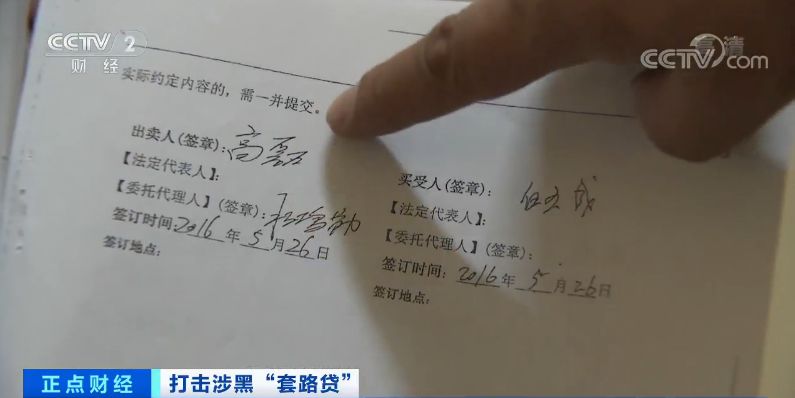 CCTV 2
财经
高清
CCTV.com
实际约定内容的，需一并提交。
出卖人(签章)：高磊
【法定代表人】：
【委托代理人】(签章)：
签订时间：2016年5月26日
签订地点：
买受人(签章)：
【法定代表人】：
【委托代理人】(签章)：
签订时间：2016年5月26日
签订地点：
正点财经
打击涉黑“套路贷”